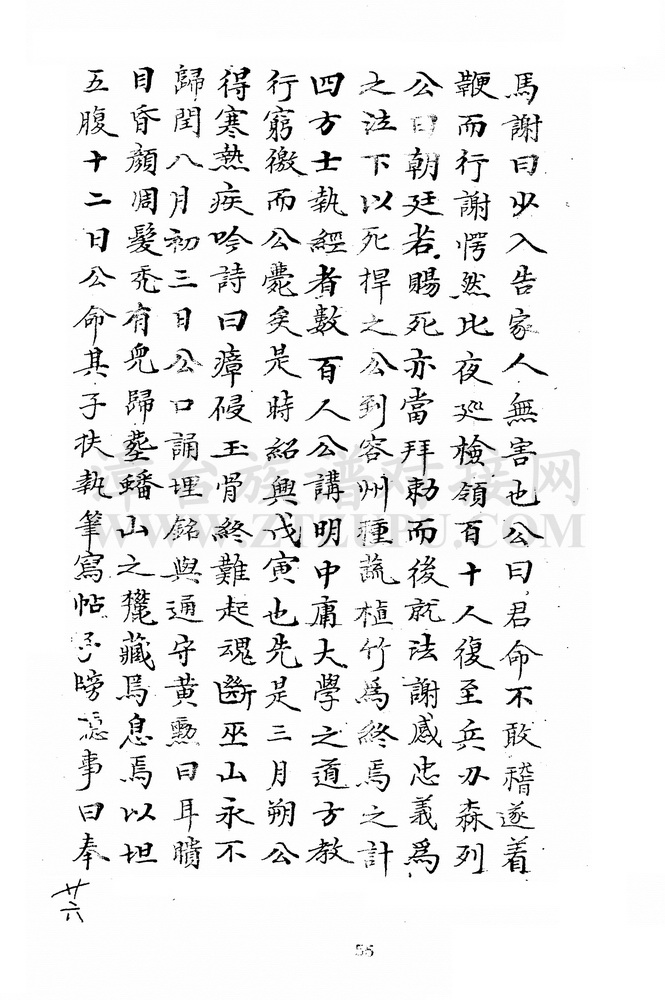 馬謝曰少入告家人無害也公曰君命不敢稽遂着
鞭而行謝愕然比夜巡檢領百十人復至兵刃森列
公曰朝廷若賜死亦當拜勅而後就法謝感忠義為
之泣下以死捍之公到容州種蔬植竹為終焉之計
四方士執經者數百人公講明中庸大學之道方教
行窮徼而公薨矣是時紹興戊寅也先是三月朔公
得寒熱疾吟詩曰瘴侵玉骨終難起魂斷巫山永不
歸閏八月初三日公口誦埋銘與通守黃勲曰耳聵
目昏顏凋髮禿有兒歸塟蟠山之麓藏焉息焉以坦
五腹十二日公命其子扶執筆寫帖子牓廳事曰奉
廿六
58
漳台族谱对接网
WWW.ZTZUPU.COM